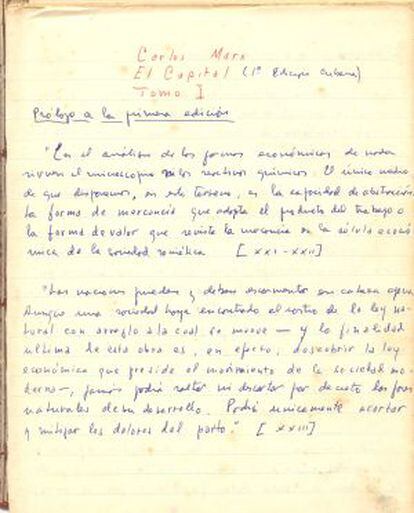 Carlos Marx
El Capital (1ª Edición Cubana)
Tomo I
Prólogo a la primera edición
"En el análisis de las formas económicas de nada
sirven el microscopio ni los reactivos químicos. El único medio
de que disponemos, en este terreno, es la capacidad de abstracción.
La forma de mercancía que adopta el producto del trabajo o
la forma de valor que reviste la mercancía es la célula econó
mica de la sociedad [XXI-XXII]
"Las naciones pueden y deben escarmentar en cabeza ajena.
Aunque una sociedad haya encontrado el rastro de la ley na-
tural con arreglo a la cual se mueve — y la finalidad
ultima de esta obra es, en efecto, descubrir la ley
económica que preside el movimiento de la sociedad mo-
derna—, jamás podrá saltar ni descartar por decreto las fases
naturales de su desarrollo. Podrá unicamente acortar
y mitigar los dolores del parto." [XXIII]